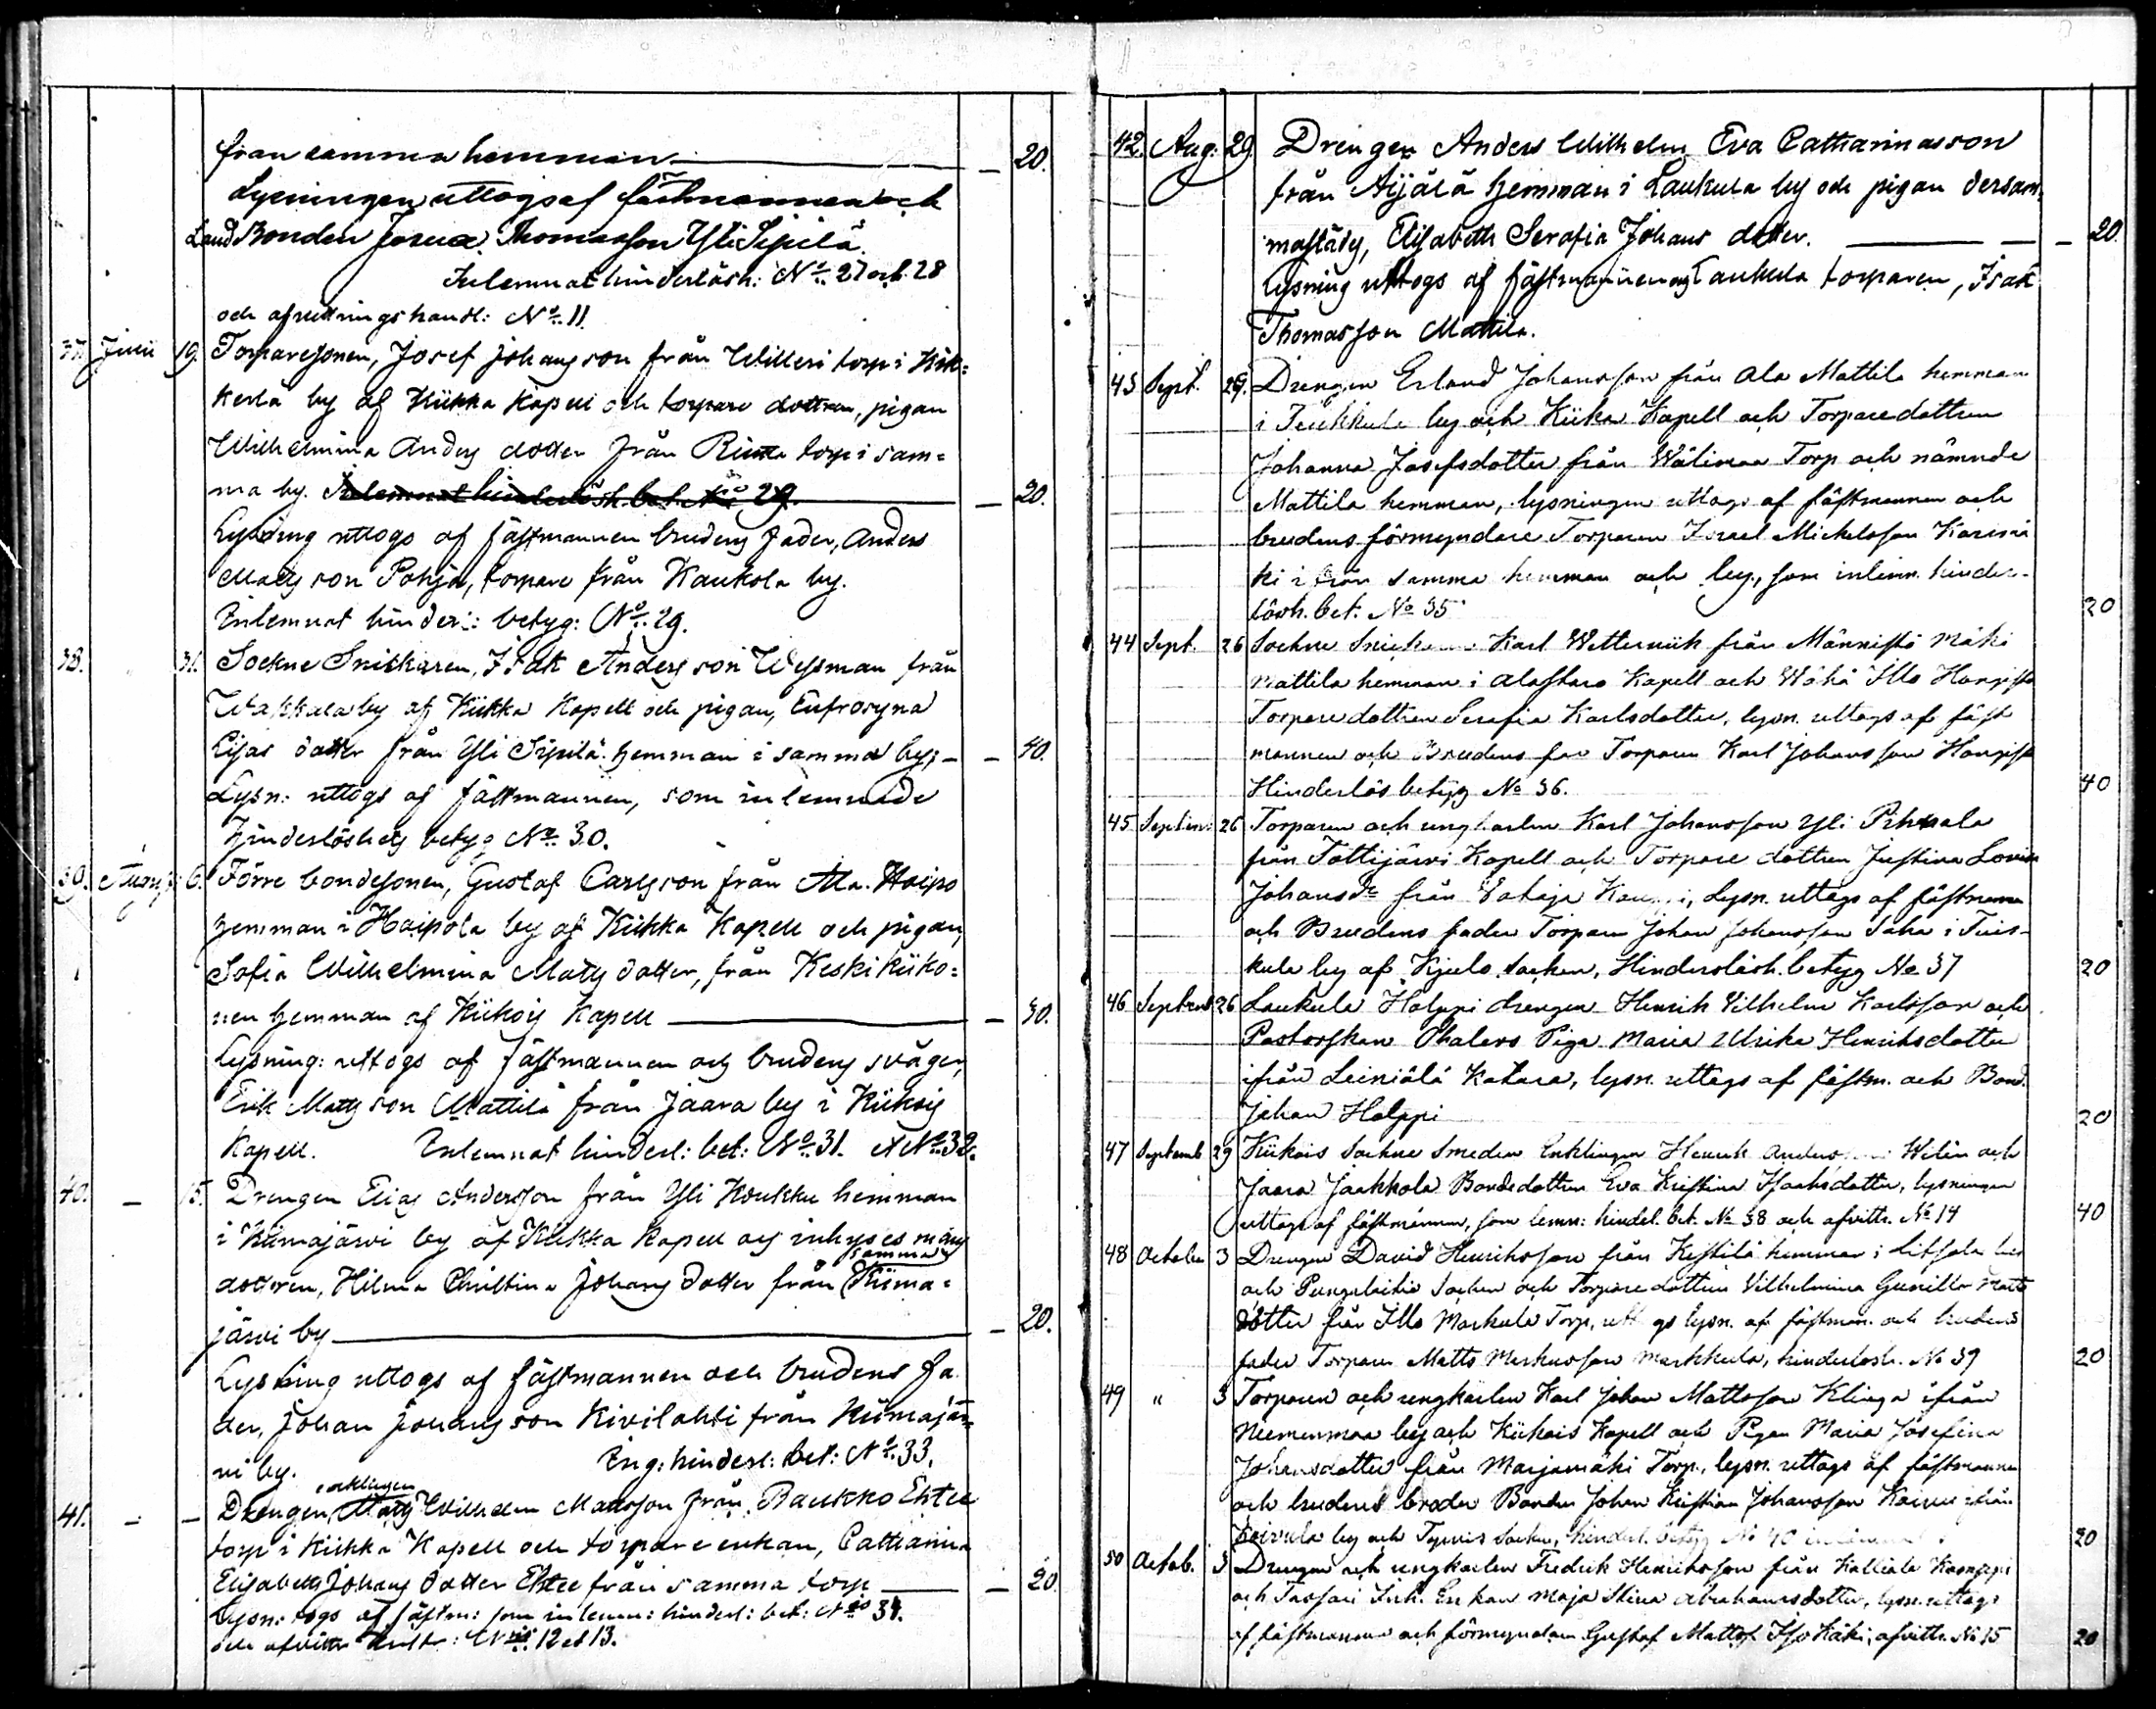 från samma hemman — 20.
Lysningen uttogs af fästmannen och
Land Bonden Josua Thomasson Yli Sipilä.
Inlemnat hinderlösh: No 27 och 28
och afvittringshandl: No 11.
37. Julii 19. Torparesonen, Josef Johansson från Willeri torp i Kik=
kerlä by af Kiikka Kapell och torpare dottren, pigan
Wilhelmina Anders dotter från Rinne torp i sam=
ma by. Inlemnat hinderlösh. bet. No 29. — 20.
Lysning uttogs af fästmannen brudens fader, Anders
Matsson Pohja, torpare från Kaukola by.
Inlemnat hinder: betyg: No 29.
38. 31. Sockne Snickaren, Isak Andersson Wessman från
Wakkala by af Kiikka Kapell och pigan, Eufrosyna
Elias dotter från Yli Sipilä hemman i samma by; — 40.
Lysn: uttogs af fästmannen, som inlemnade
hinderlöshets betyg No 30.
39. Augusti 6. Förre bondesonen, Gustaf Carlsson från Ala Haipo
hemman i Haipola by af Kiikka Kapell och pigan,
Sofia Wilhelmina Mats dotter, från Keski Kiiko=
nen hemman af Kiikois Kapell — 30.
Lysning: uttogs af fästmannen och brudens svåger,
Erik Matsson Mattila från Jaara by i Kiikois
Kapell. Inlemnat hinderl: bet: No 31. et No 32.
40. — 15. Drengen Elias Andersson från Yli Koukku hemman
i Kiimajärvi by af Kiikka Kapell och inhyses mans
samma
dottren, Hilma Christina Johans dotter från Kiima=
järvi by — 20.
Lysning uttogs af fästmannen och brudens fa
der, Johan Johansson Kivilahti från Kiimajär
vi by. Ing: hinderl: bet: No 33.
enklingen
41. — — Drengen Mats Wilhelm Matsson från Baukko Ehtee
torp i Kiikka Kapell och torpare enkan, Catharina
Elisabeth Johans dotter Ehtee från samma torp — 20.
Lysn: togs af fästm: som inlemn: hinderl: bet: No 34.
och afvittr: No 12 et 13.
42. Aug: 29. Drengen Anders Wilhelm Eva Catharinasson
från Äijälä hemman i Laukula by och pigan dersam
mastädes, Elisabeth Serafia Johans dotter. — 20.
Lysning uttogs af fästmannen och Laukula torparen, Isak
Thomasson Mattila.
43 Sept. 29. Drengen Erland Johansson från Ala Mattila hemman
i by och Kiikka Kapell och Torparedottren
Johanna Josefsdotter från Wälimaa Torp och nämnde
Mattila hemman, lysningen uttogs af fästmannen och
brudens förmyndare Torparen Israel Mickelsson
ki ifrån samma hemman och by, som inlemn. hinder-
lösh. bet. No 35 20
44 Sept. 26 Sockne Karl Wetterwik från Männistö mäki
Mattila hemman i Alastaro Kapell och Wähä Illo Hongisto
Torpare dottren Serafia Karlsdotter, lysn. uttogs af fäst
mannen och Brudens far Torparen Karl Johansson Hongisto
Hinderlös betyg No 36. 40
45 Septem: 26 Torparen och ungkarlen Karl Johansson Yli Pihkala
från Tottijärvi Kapell och Torpare dottren Justina Lovisa
Johansdr från Wataja, Lysn. uttogs af fästmannen
och Brudens fader Torparen Johan Johansson Saha i Tuis-
kula by af Kjulo socken, Hinderslösh. betyg No 37 20
46 Septemb 26 Laukula Holppi drengen Henrik Wilhelm Karlsson och
Pastorskan Thalens Piga Maria Ulrika Henriksdotter
ifrån Leiniälä Katara, lysn. uttogs af fästm. och Bond.
Johan Holppi 20
47 Septemb 29 Kiikois Sockne Smeden Enklingen Henrik Wilén och
Jaara Jaakkola Bondedottren Eva Kristina Isaksdotter, lysningen
uttogs af fästmannen, som lemn: hinderl. bet. No 38 och afvittr. No 14 40
48 October 3 Drengen David Henriksson från Kestilä hemman i Litsola by
och Pungalaitio Socken och Torparedottren Vilhelmina Gunilla Mats
dotter från Illo Markula Torp, uttogs lysn. af fästman. och brudens
fader Torparen Matts Markusson Markkula, hinderlösh. No 39 20
49 " 3 Torparen och ungkarlen Karl Johan Mattsson Klinga ifrån
Niemenmaa by och Kiikois Kapell och Pigan Maria Josefina
Johansdotter från Marjamäki Torp, lysn. uttogs af fästmannen
och brudens broder Bonden Johan Kristian Johansson ifrån
by och Tyrvis Socken, hinderl. betyg No 40 20
50 Octob. 3 Drengen och ungkarlen Fredrik Henriksson från Kalliala
och Inh. Enkan Maja Stina Abrahamsdotter, lysn. uttogs
af fästmannen och förmyndaren Gustaf Mattss. Iso Käki, afvittr. No 15 20